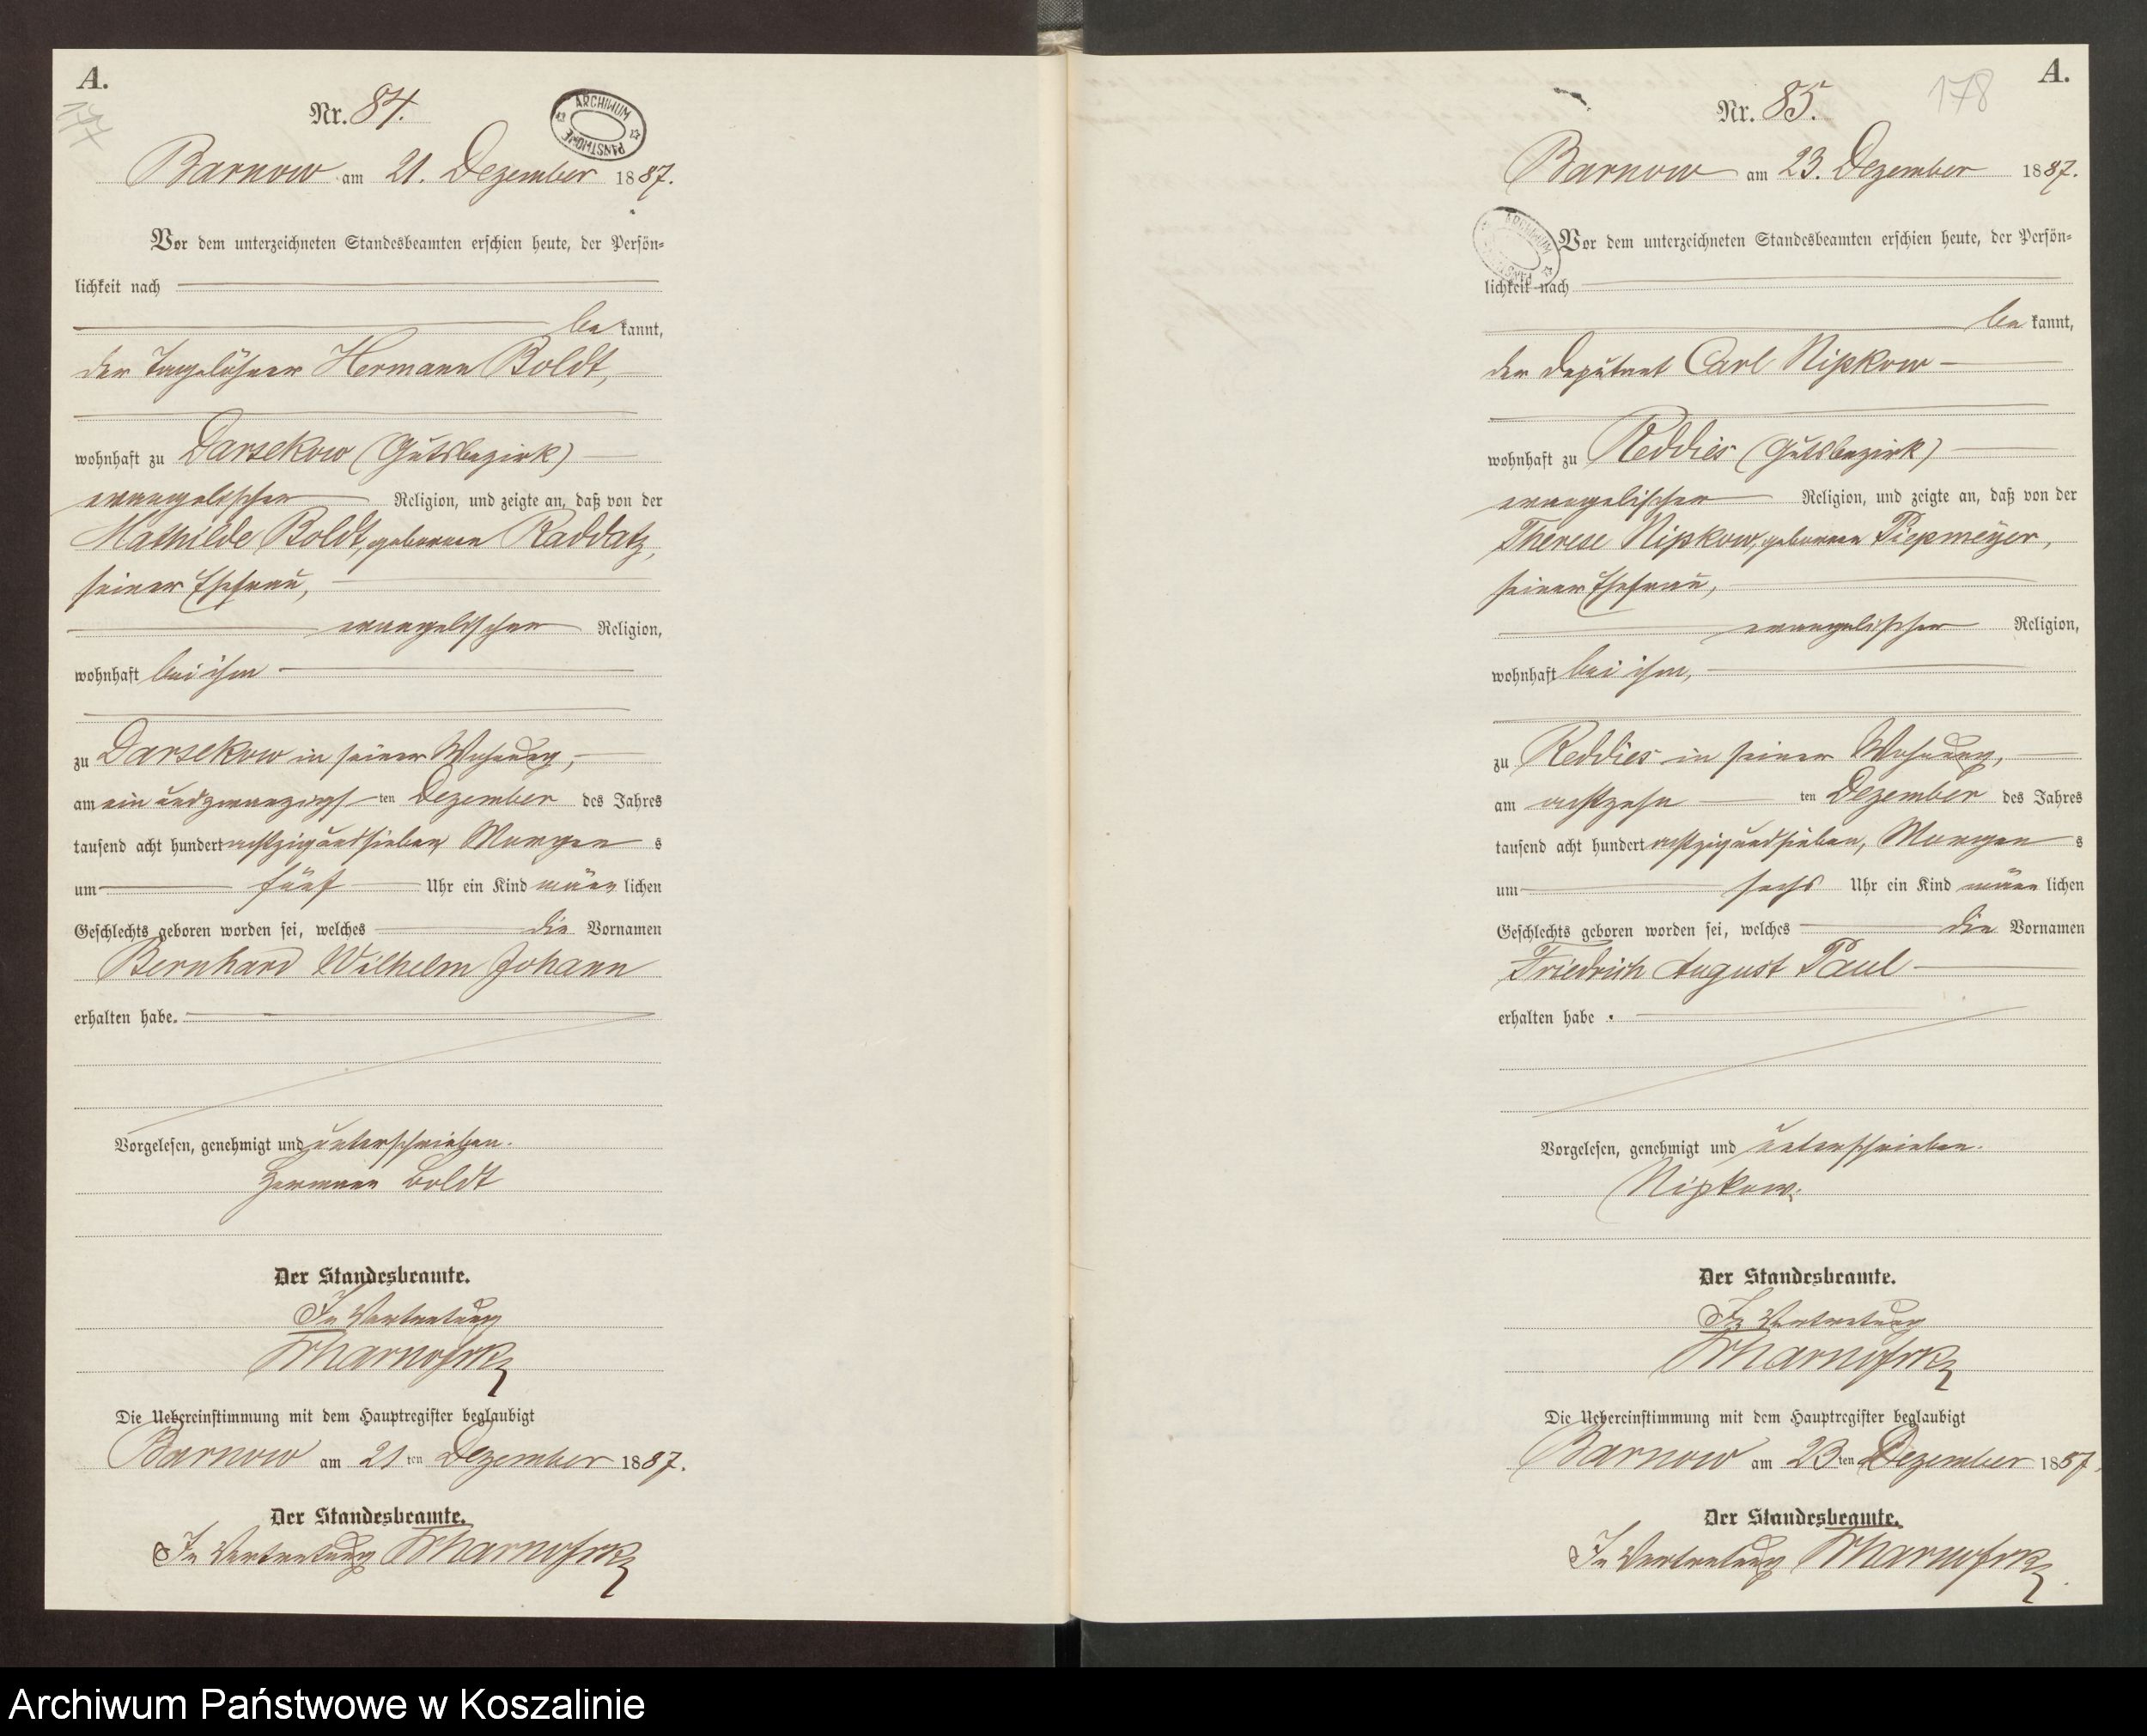 A.
177
Nr. 84.
ARCHIWUM PAŃSTWOWE
Barnow am 21. Dezember 1887.
Vor dem unterzeichneten Standesbeamten erschien heute, der Persön-
lichkeit nach
be kannt,
der Tagelöhner Hermann Boldt,
wohnhaft zu Darsekow (Gutsbezirk)
evangelischer Religion, und zeigte an, daß von der
Mathilde Boldt, geborenen Raddatz,
seiner Ehefrau,
evangelischer Religion,
wohnhaft bei ihm
zu Darsekow in seiner Wohnung,
am ein und zwanzigsten Dezember des Jahres
tausend acht hundert achtzig und sieben, Morgens
um fünf Uhr ein Kind männlichen
Geschlechts geboren worden sei, welches die Vornamen
Bernhard Wilhelm Johann
erhalten habe.
Vorgelesen, genehmigt und unterschrieben.
Hermann Boldt
Der Standesbeamte.
In Vertretung
Die Uebereinstimmung mit dem Hauptregister beglaubigt
Barnow am 21ten Dezember 1887.
Der Standesbeamte.
In Vertretung
A.
178
Nr. 85.
Barnow am 23. Dezember 1887.
ARCHIWUM
Vor dem unterzeichneten Standesbeamten erschien heute, der Persön-
lichkeit nach
be kannt,
der Deputant Carl Nipkow
wohnhaft zu Reddies (Gutsbezirk)
evangelischer Religion, und zeigte an, daß von der
Therese Nipkow, geborenen Piepmeyer,
seiner Ehefrau,
evangelischer Religion,
wohnhaft bei ihm,
zu Reddies in seiner Wohnung,
am achtzehn ten Dezember des Jahres
tausend acht hundert achtzig und sieben, Morgens
um sechs Uhr ein Kind männlichen
Geschlechts geboren worden sei, welches die Vornamen
Friedrich August Paul
erhalten habe.
Vorgelesen, genehmigt und unterschrieben.
Nipkow.
Der Standesbeamte.
In Vertretung
Die Uebereinstimmung mit dem Hauptregister beglaubigt
Barnow am 23ten Dezember 1887.
Der Standesbeamte.
In Vertretung
Archiwum Państwowe w Koszalinie